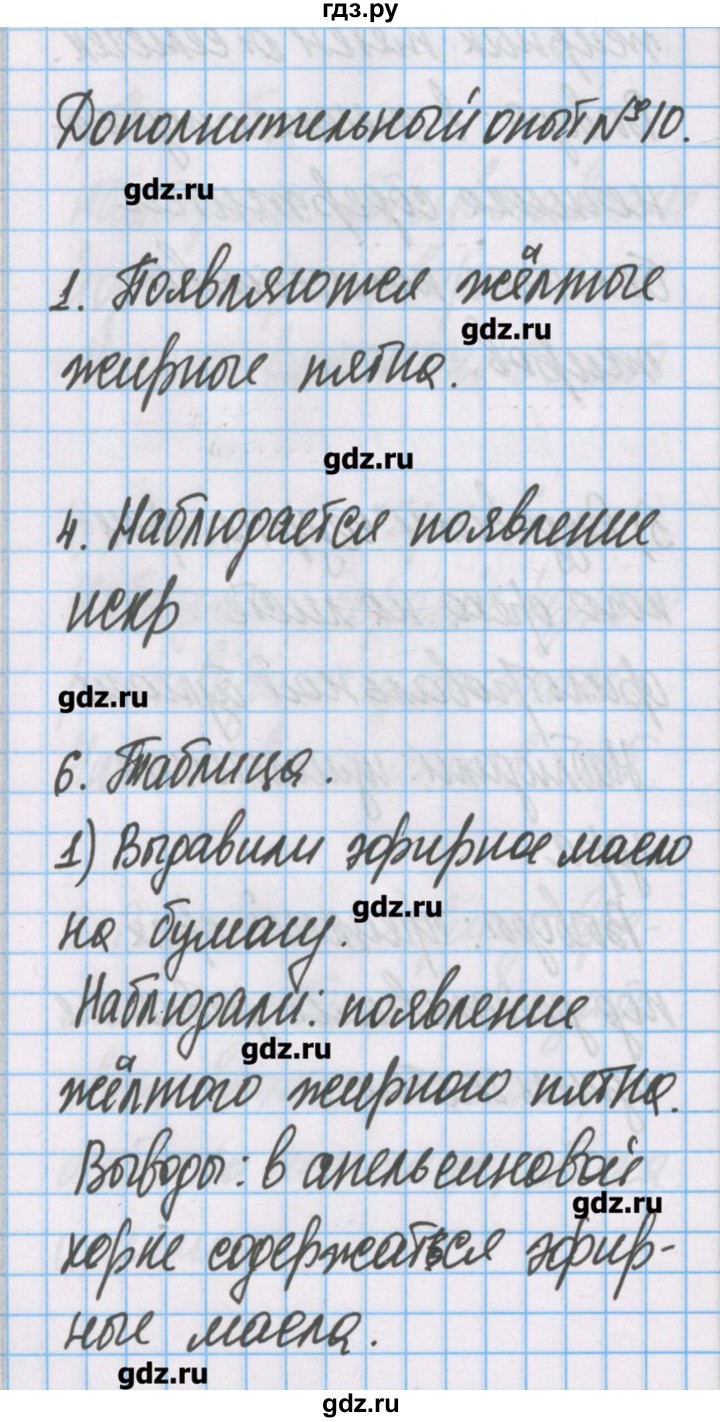 гдз.ру
Дополнительный опыт №10.
gdz.ru
1. Появляются жёлтые
gdz.ru
жирные пятна.
gdz.ru
4. Наблюдается появление
искр
gdz.ru
6. Таблица.
1) Выдавили эфирное масло
gdz.ru
на бумагу.
Наблюдали: появление
gdz.ru
жёлтого жирного пятна.
Выводы: в апельсиновой
gdz.ru
корке содержаться эфир-
ные масла.
gdz.ru
gdz.ru